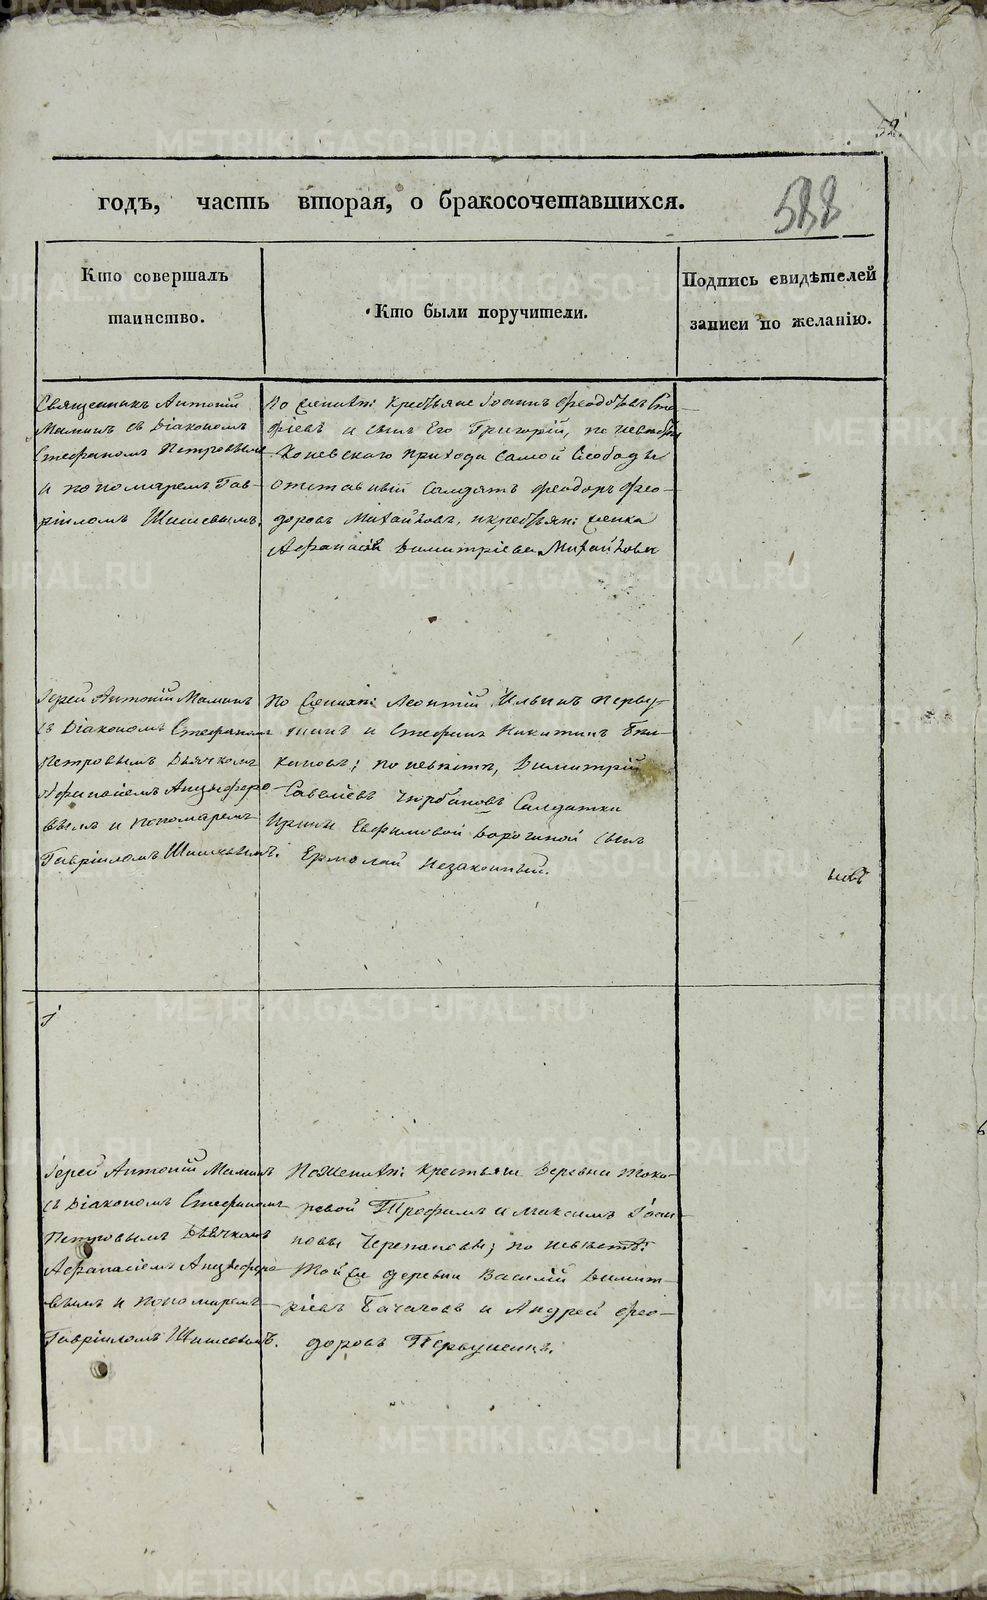 52.
годъ, часть вторая, о бракосочетавшихся.
588
Кто совершалъ
таинство.
Кто были поручители.
Подпись свидѣтелей
записи по желанію.
Священникъ Антоній
Маминъ съ Діакономъ
Стефаномъ Петровымъ
и пономаремъ Гав-
ріиломъ Шишевымъ.
По женихѣ: крестьяне Іоаннъ Феодоровъ
и сынъ Его Григорій, по невѣстѣ
Коневскаго прихода самой Слободы
отставный Салдатъ Феодоръ Фео-
доровъ Михайловъ, и крестьян:
Афанасій Димитріевъ Михайловъ
Іерей Антоній Маминъ
съ Діакономъ Стефаномъ
Петровымъ Дьячкомъ
Афанасіемъ Анцыферо-
вымъ и пономаремъ
Гавріиломъ Шишевымъ.
По Женихѣ: Леонтій Ильинъ Перву-
шинъ и Стефанъ Никитинъ
по невѣстѣ, Димитрій
Савеліевъ Чурбановъ Салдатки
Ирины Евфимовой Ворониной сынъ
Ермолай Незаконный.
Іерей Антоній Маминъ
съ Діакономъ Стефаномъ
Петровымъ Дьячкомъ
Афанасіемъ Анцыферо-
вымъ и пономаремъ
Гавріиломъ Шишевымъ.
По женихѣ: крестьяне Деревни Тока-
ревой Трофимъ и Максимъ Іоан-
новы Черепановы; по невѣстѣ:
той же деревни Василій Димит-
ріевъ Бачаговъ и Андрей Фео-
доровъ Первушинъ.